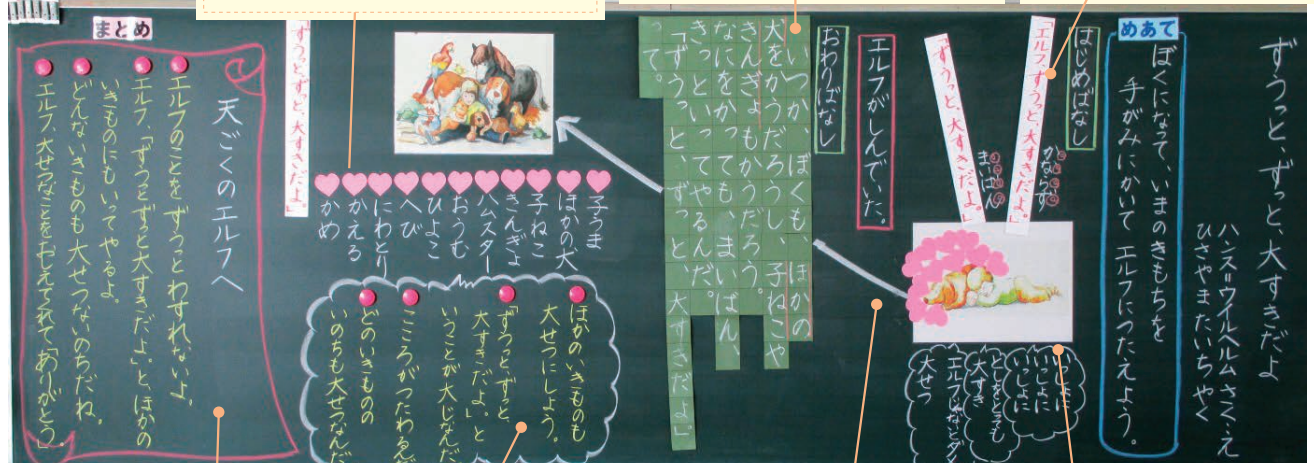 ずうっと、ずっと、大すきだよ
ハンス=ウイルヘルム さく・え
ひさやまたいち やく
めあて
ぼくになって、いまのきもちを
手がみにかいて エルフにつたえよう。
はじめばなし
「エルフ、ずうっと、大すきだよ。」
かならず
「ずうっと、大すきだよ。」
まいばん
いっしょに
いっしょに
としをとっても
大すき
エルフじゃなきゃダメ
大せつ
エルフがしんでいた。
おわりばなし
いつか、ぼくも、ほかの
犬をかうだろうし、子ねこや
きんぎょもかうだろう。
なにをかっても、まいばん、
きっといってやるんだ。
「ずうっと、ずっと、大すきだよ」
って。
子うま
ほかの犬
子ねこ
きんぎょ
ハムスター
おうむ
ひよこ
へび
にわとり
かえる
かめ
ほかの、いきものも
大せつにしよう。
「ずうっとずっと
大すきだよ。」と
いうことが大じなんだ
こころがつたわるんだ
どのいきものの
いのちも大せつなんだ
「ずうっとずっと、大すきだよ。」
まとめ
天ごくのエルフへ
エルフのことを ずうっとわすれないよ。
エルフ、「ずうっとずっと大すきだよ。」と、ほかの
いきものにもいってやるよ。
どんないきものも 大せつないのちだね。
エルフ、大せつなことをおしえてくれて「ありがとう」。